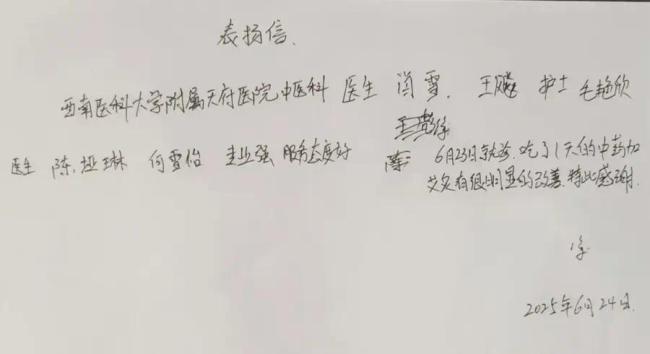 表扬信.
西南医科大学附属天府医院中医科 医生 闫雪. 王飚 护士 毛艳欣
医生 陈.娅琳 何雪怡 服务态度好
6月23日就诊.吃了1天的中药加
艾灸有很明显的改善.特此感谢.
2025年6月24日.